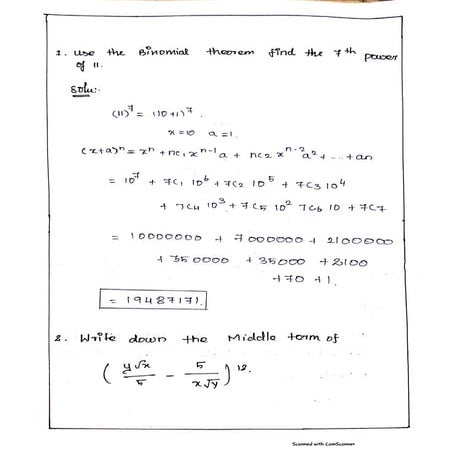 1. Use the Binomial theorem find the 7th power
of 11.
Solu:-
(11)^7 = (10+1)^7.
x=10 a=1.
(x+a)^n = x^n + nC1 x^n-1 a + nC2 x^n-2 a^2 + ... + an
= 10^7 + 7C1 10^6 + 7C2 10^5 + 7C3 10^4
+ 7C4 10^3 + 7C5 10^2 7C6 10 + 7C7
= 10000000 + 7000000 + 2100000
+ 350000 + 35000 + 2100
+70 + 1.
= 19487171.
2. Write down the Middle term of
(y√x/5 - 5/x√y)^12.
Scanned with CamScanner